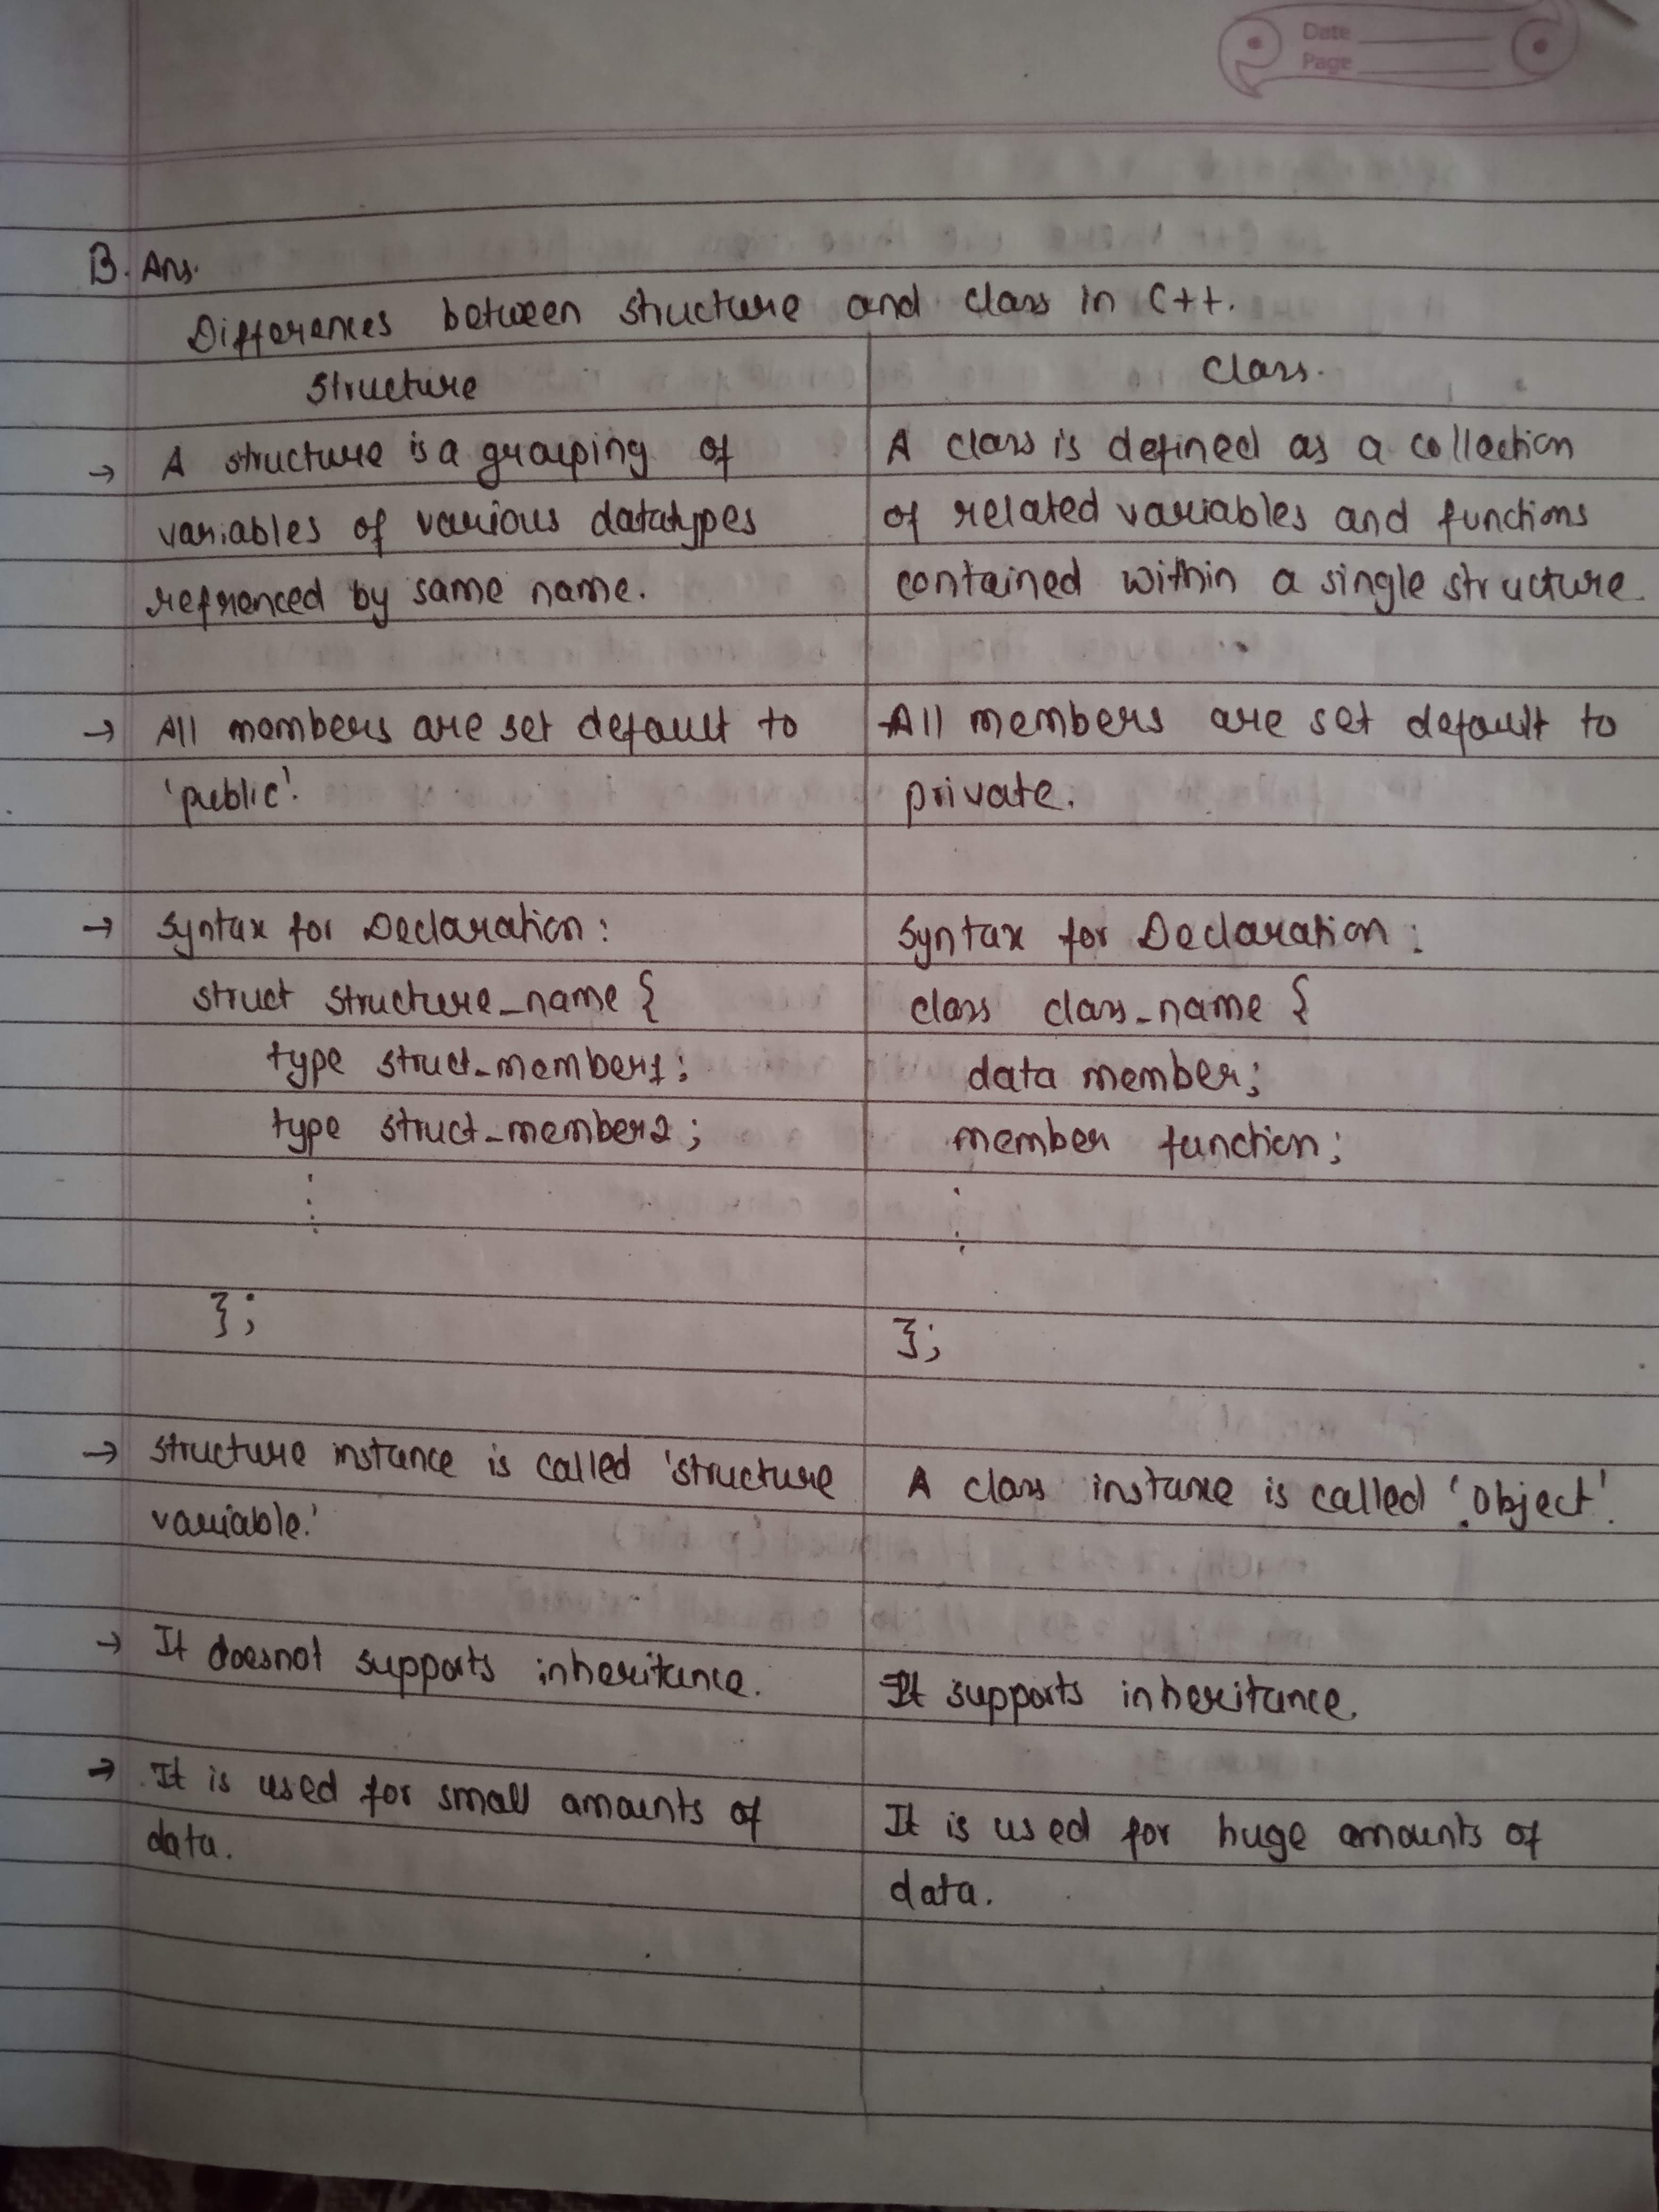 Date
Page
B. Ans.
Differences between structure and class in C++.
Structure
Class.
→ A structure is a grouping of
variables of various datatypes
refrenced by same name.
A class is defined as a collection
of related variables and functions
contained within a single structure.
→ All members are set default to
'public'.
All members are set default to
private.
→ Syntax for Declaration:
struct structure_name {
type struct_member1;
type struct_member2;
⋮
};
Syntax for Declaration:
class class_name {
data member;
member function;
⋮
};
→ Structure instance is called 'structure
variable.'
A class instance is called 'Object'.
→ It doesnot supports inheritance.
It supports inheritance.
→ It is used for small amounts of
data.
It is used for huge amounts of
data.